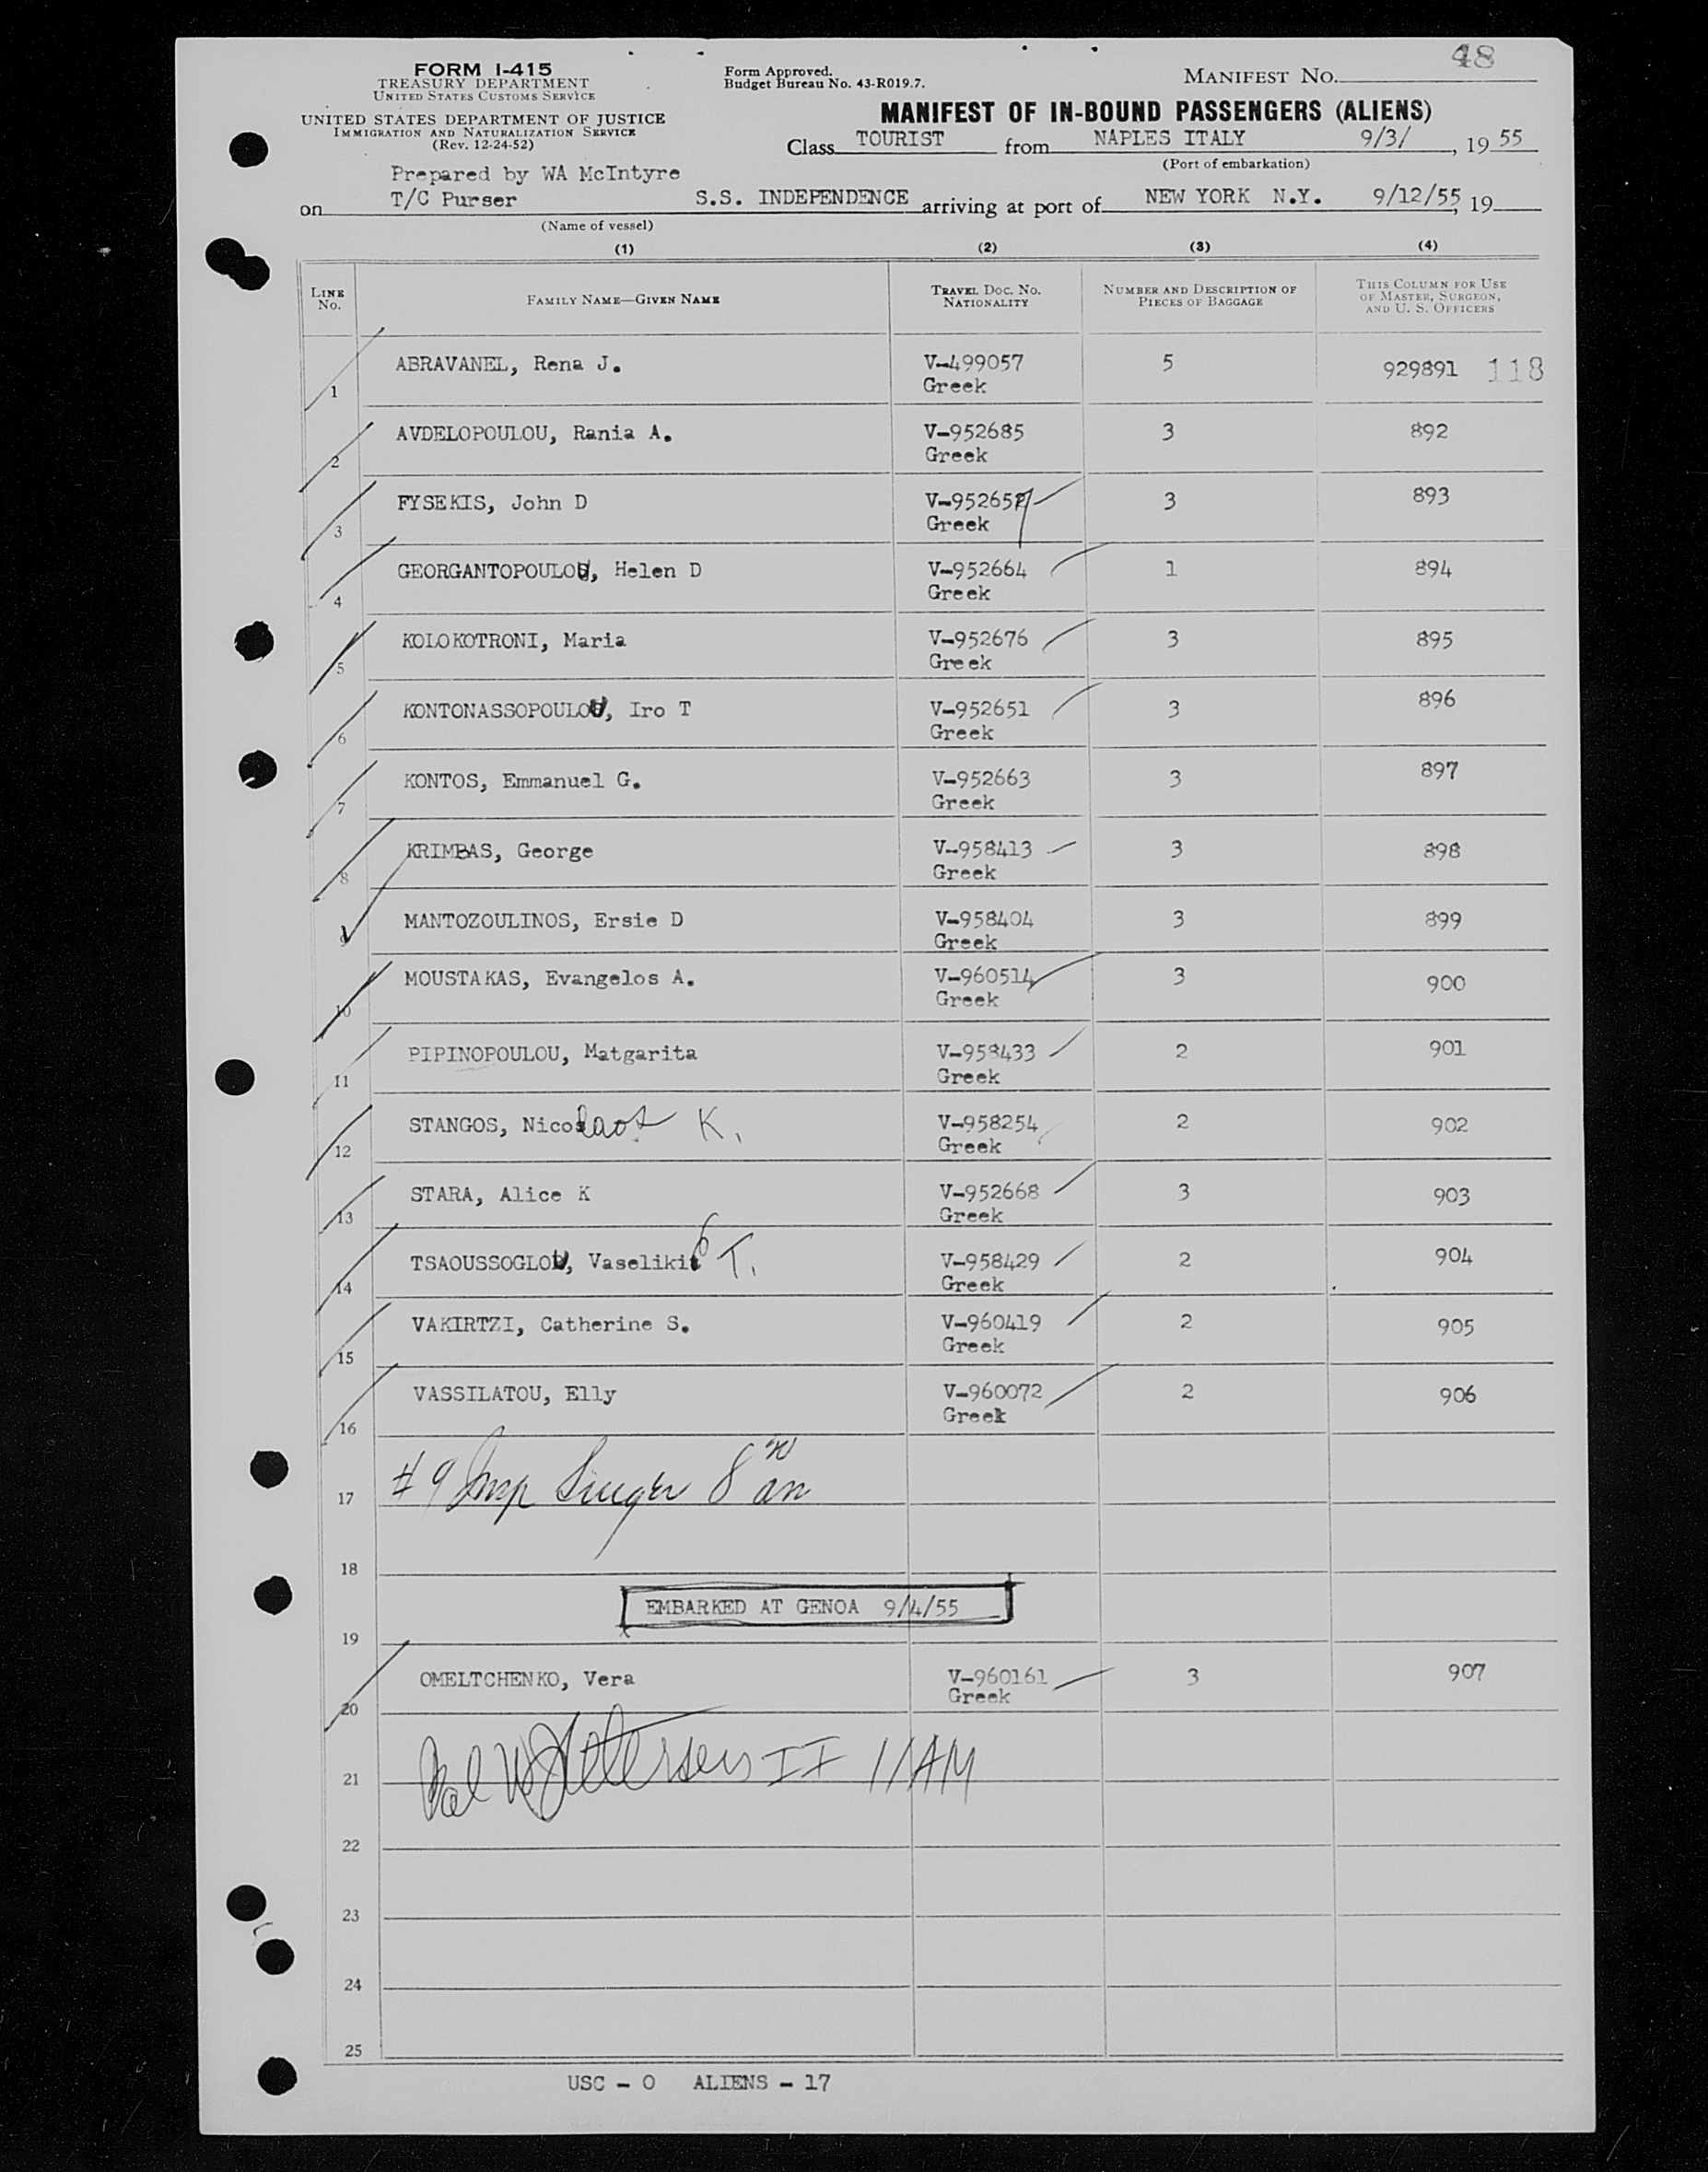 48
FORM I-415
TREASURY DEPARTMENT
UNITED STATES CUSTOMS SERVICE
Form Approved.
Budget Bureau No. 43-R019.7.
MANIFEST NO.
UNITED STATES DEPARTMENT OF JUSTICE
IMMIGRATION AND NATURALIZATION SERVICE
(Rev. 12-24-52)
MANIFEST OF IN-BOUND PASSENGERS (ALIENS)
Class TOURIST from NAPLES ITALY 9/3/, 19 55
(Port of embarkation)
Prepared by WA McIntyre
on T/C Purser S.S. INDEPENDENCE arriving at port of NEW YORK N.Y. 9/12/55, 19
(Name of vessel)
(1) (2) (3) (4)
LINE No. FAMILY NAME—GIVEN NAME TRAVEL DOC. NO. NATIONALITY NUMBER AND DESCRIPTION OF PIECES OF BAGGAGE THIS COLUMN FOR USE OF MASTER, SURGEON, AND U. S. OFFICERS
1 ABRAVANEL, Rena J. V-499057 5 929891 118
Greek
2 AVDELOPOULOU, Rania A. V-952685 3 892
Greek
3 FYSEKIS, John D V-95265 3 893
Greek
4 GEORGANTOPOULOU, Helen D V-952664 1 894
Greek
5 KOLOKOTRONI, Maria V-952676 3 895
Greek
6 KONTONASSOPOULOU, Iro T V-952651 3 896
Greek
7 KONTOS, Emmanuel G. V-952663 3 897
Greek
8 KRIMBAS, George V-958413 3 898
Greek
9 MANTOZOULINOS, Ersie D V-958404 3 899
Greek
10 MOUSTAKAS, Evangelos A. V-960514 3 900
Greek
11 PIPINOPOULOU, Matgarita V-958433 2 901
Greek
12 STANGOS, Nicolaos K. V-958254 2 902
Greek
13 STARA, Alice K V-952668 3 903
Greek
14 TSAOUSSOGLOU, Vaseliki T. V-958429 2 904
Greek
15 VAKIRTZI, Catherine S. V-960419 2 905
Greek
16 VASSILATOU, Elly V-960072 2 906
Greek
17 #9 Insp Singer 8
18
EMBARKED AT GENOA 9/4/55
19
20 OMELTCHENKO, Vera V-960161 3 907
Greek
21 Val W Petersen II 11AM
22
23
24
25
USC - 0 ALIENS - 17